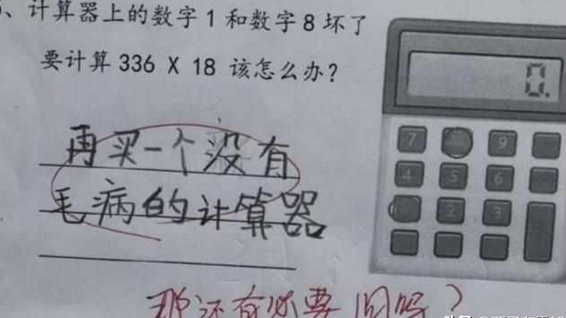 、计算器上的数字1和数字8坏了
要计算336 X 18 该怎么办?
0.
7
9
4
5
6
2
3
再买一个没有
毛病的计算器
那还有必要问吗?